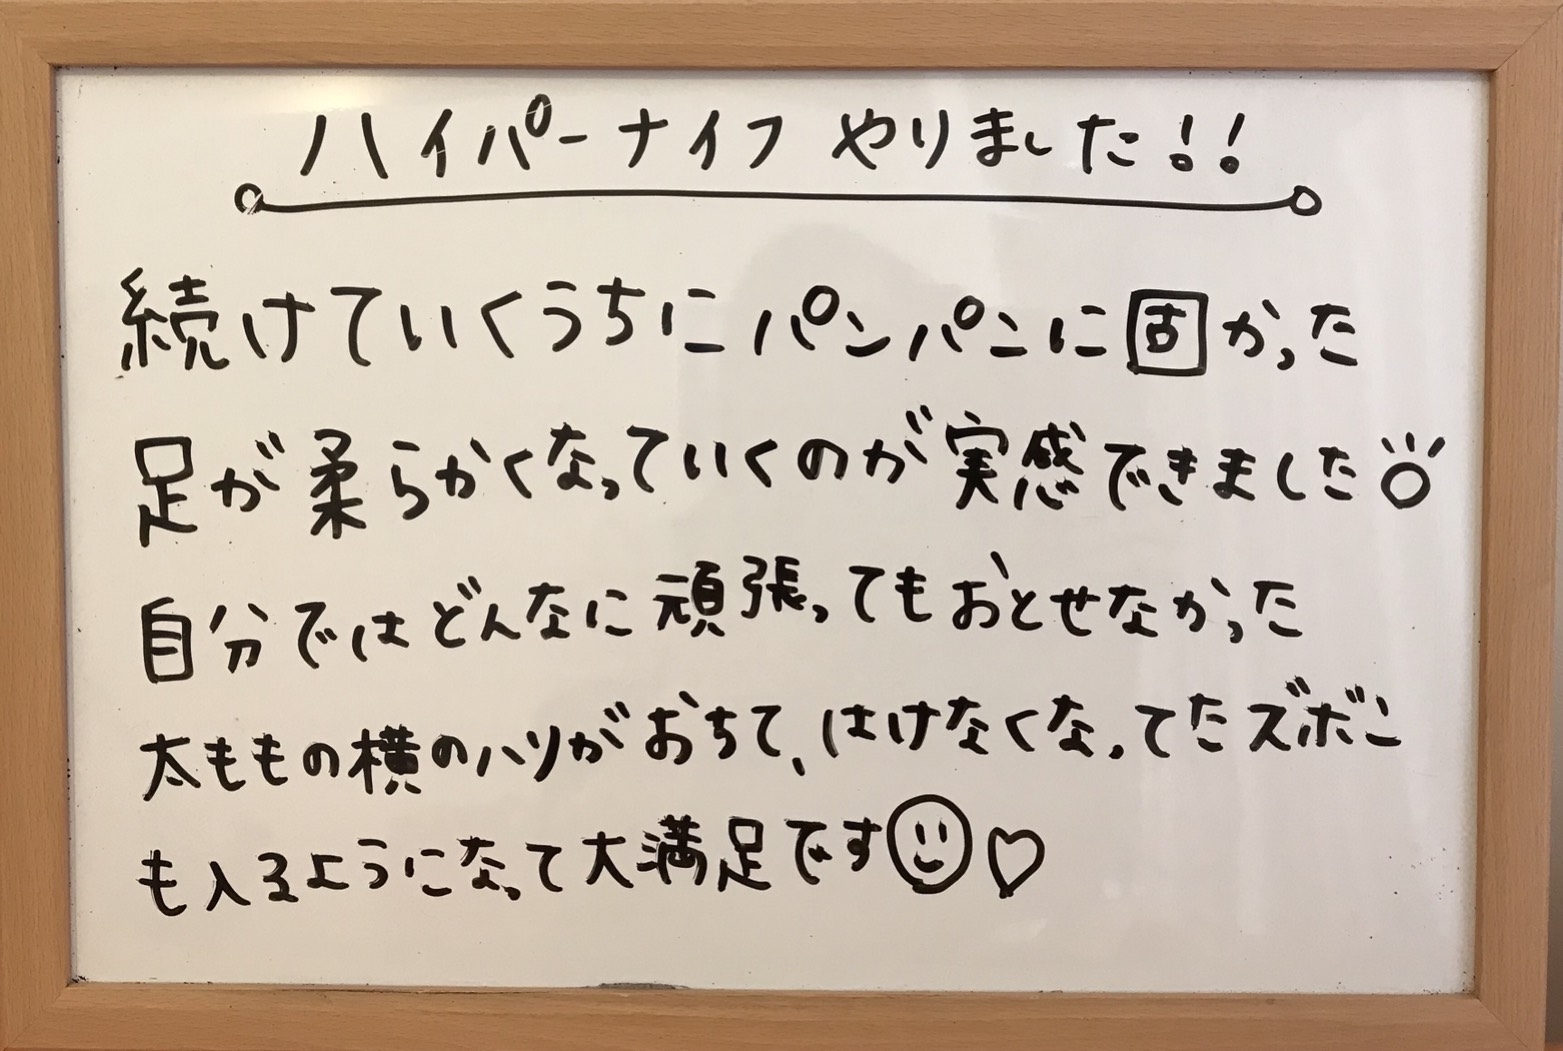 ハイパーナイフ やりました!!
続けていくうちにパンパンに固かった
足が柔らかくなっていくのが実感できました
自分ではどんなに頑張ってもおとせなかった
太ももの横のハリがおちて、はけなくなってたズボン
も入るようになって大満足です